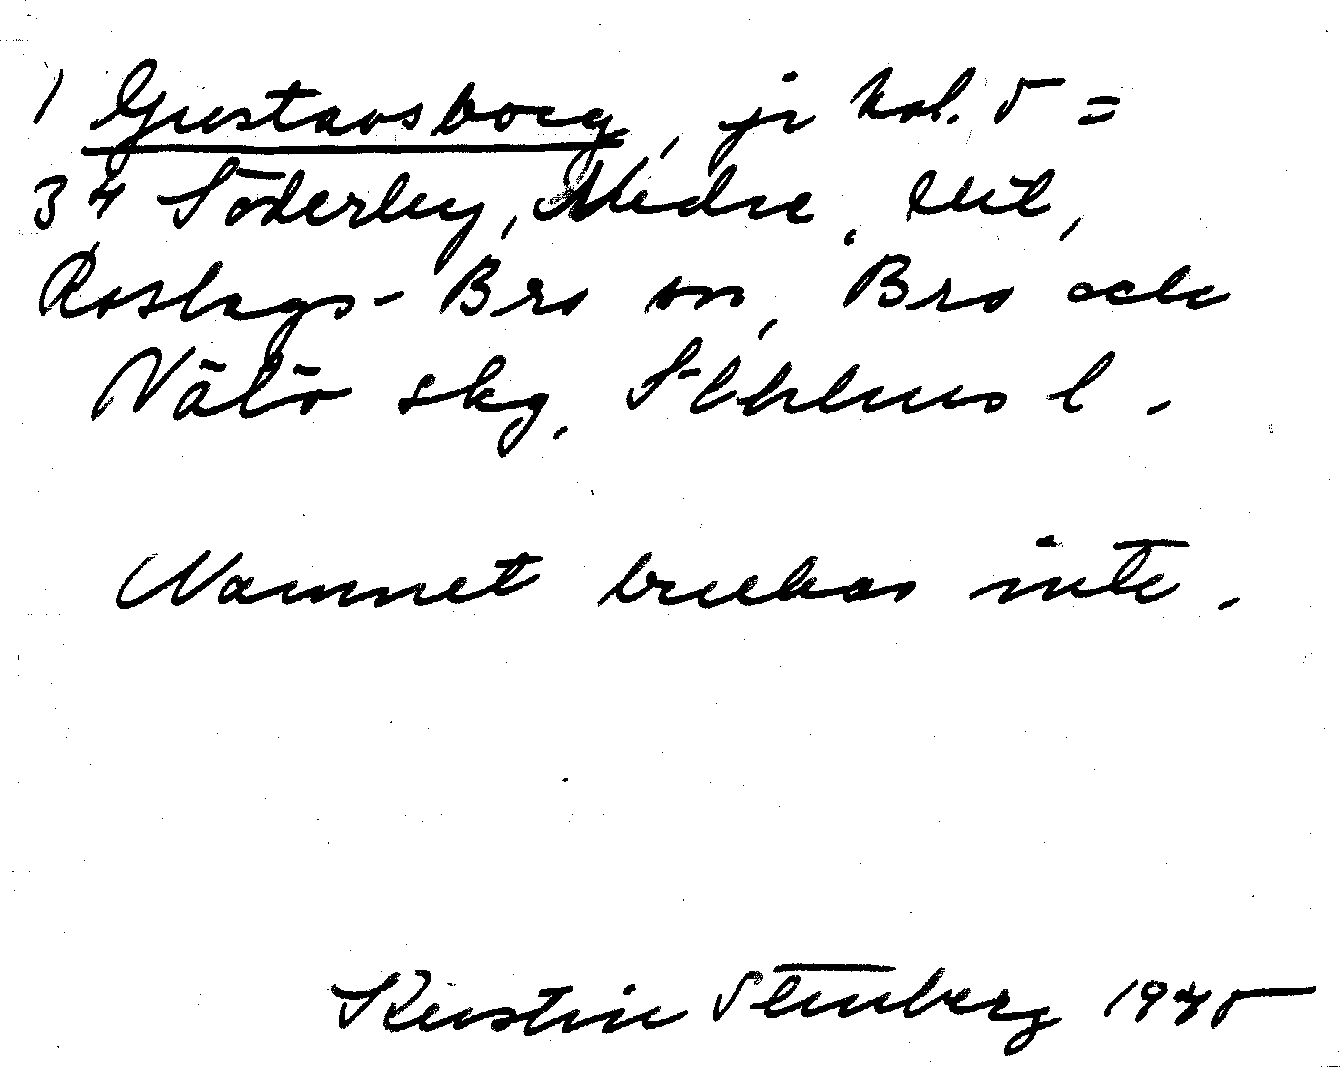 1 Gustavsborg, jr kol. 5 =
34 Söderby, Nedre, utl,
Roslags-Bro sn, Bro och
Vätö skg, Sthlms l.
Namnet brukas inte.
Kerstin Stenberg 1945